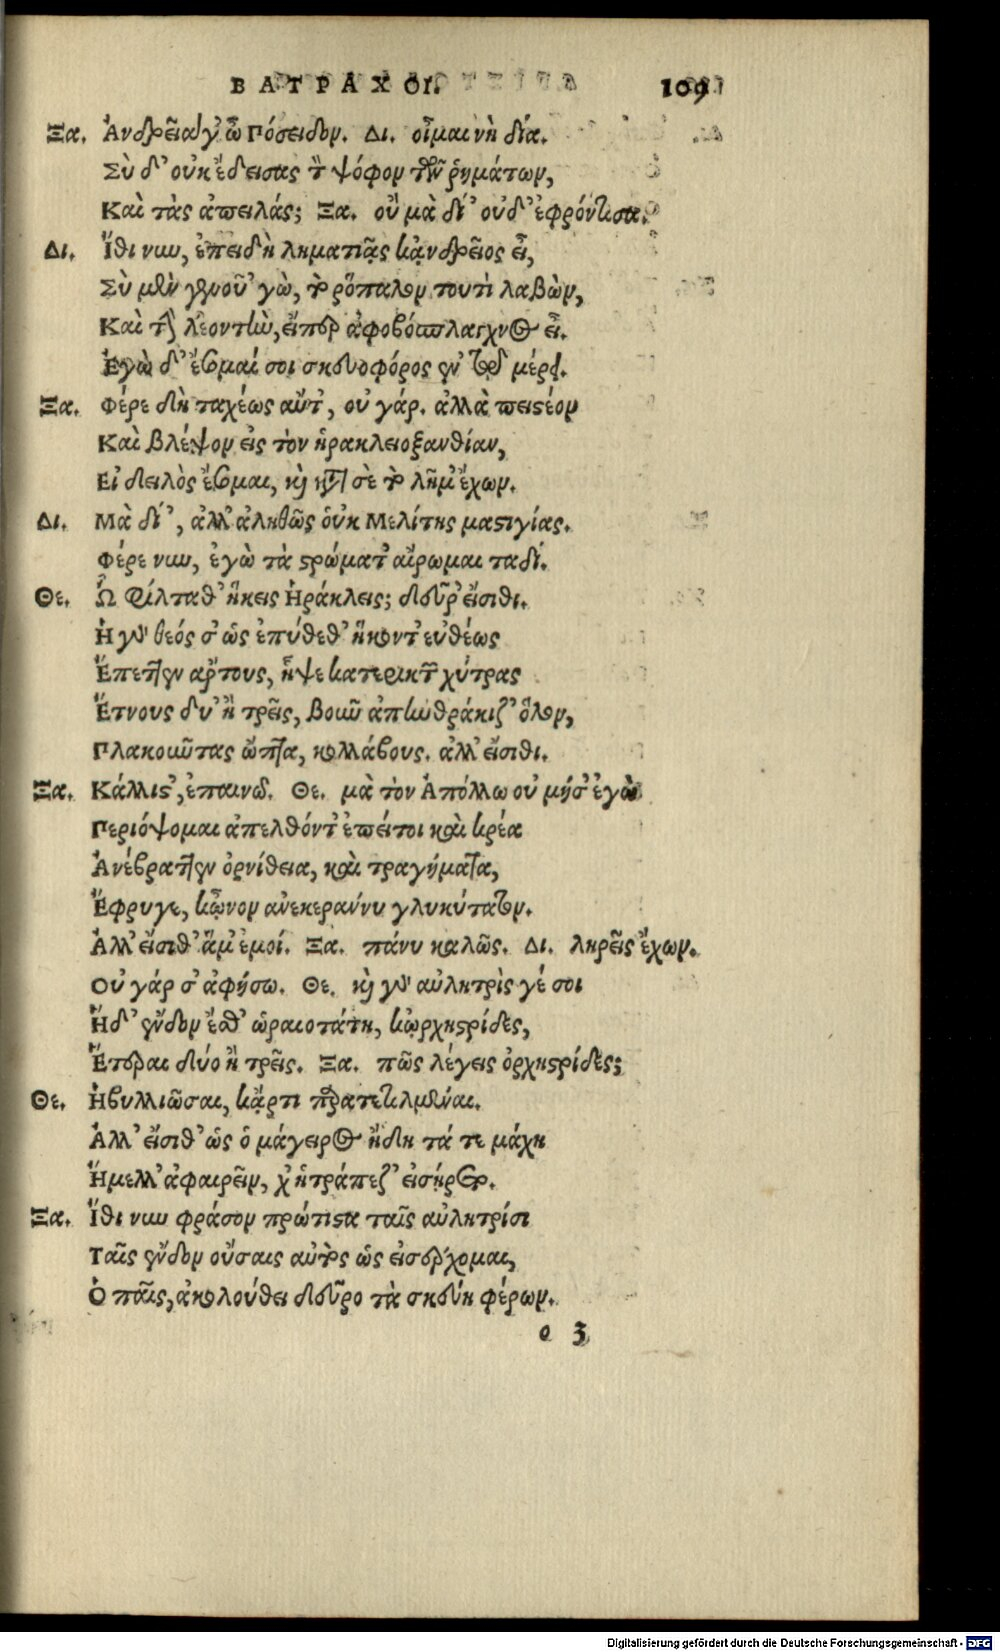 ΒΑΤΡΑΧΟΙ. 109
Ξα. Ἀνδρεῖα γ' ὦ Πόσειδον. Δι. οἶμαι νὴ δία.
Σὺ δ' οὐκ ἔδεισας τὸν ψόφον τῶν ῥημάτων,
Καὶ τὰς ἀπειλάς; Ξα. οὐ μὰ δί' οὐδ' ἐφρόντισα.
Δι. Ἴθι νυν, ἐπειδὴ ληματιᾷς κἀνδρεῖος εἶ,
Σὺ μὲν γενοῦ 'γὼ, τὸ ῥόπαλον τουτὶ λαβὼν,
Καὶ τὴν λεοντῆν, εἴπερ ἀφοβόσπλαγχνος εἶ.
Ἐγὼ δ' ἔσομαί σοι σκευοφόρος ἐν τῷ μέρει.
Ξα. Φέρε δὴ ταχέως αὔτ', οὐ γάρ. ἀλλὰ πειστέον
Καὶ βλέψον εἰς τὸν ἡρακλειοξανθίαν,
Εἰ δειλὸς ἔσομαι, καὶ κατὰ σὲ τὸ λῆμ' ἔχων.
Δι. Μὰ δί', ἀλλ' ἀληθῶς οὑκ Μελίτης μαστιγίας.
Φέρε νυν, ἐγὼ τὰ στρώματ' αἴρωμαι ταδί.
Θε. Ὦ φίλταθ' ἥκεις Ἡράκλεις; δεῦρ' εἴσιθι.
Ἡ γὰρ θεός σ' ὡς ἐπύθεθ' ἥκοντ' εὐθέως
Ἔπεττεν ἄρτους, ἧψε κατερικτῶν χύτρας
Ἔτνους δύ' ἢ τρεῖς, βοῦν ἀπηνθράκιζ' ὅλον,
Πλακοῦντας ὤπτα, κολλάβους. ἀλλ' εἴσιθι.
Ξα. Κάλλιστ', ἐπαινῶ. Θε. μὰ τὸν Ἀπόλλω οὐ μή σ' ἐγὼ
Περιόψομαι ἀπελθόντ' ἐπείτοι καὶ κρέα
Ἀνέβραττεν ὀρνίθεια, καὶ τραγήματα,
Ἔφρυγε, κᾦνον ἀνεκεράννυ γλυκύτατον.
Ἀλλ' εἴσιθ' ἅμ' ἐμοί. Ξα. πάνυ καλῶς. Δι. ληρεῖς ἔχων.
Οὐ γάρ σ' ἀφήσω. Θε. καὶ γὰρ αὐλητρὶς γέ σοι
Ἥδ' ἔνδον ἔσθ' ὡραιοτάτη, κᾠρχηστρίδες,
Ἕτεραι δύο ἢ τρεῖς. Ξα. πῶς λέγεις ὀρχηστρίδες;
Θε. Ἡβυλλιῶσαι, κἄρτι παρατετιλμέναι.
Ἀλλ' εἴσιθ' ὡς ὁ μάγειρος ἤδη τά τε μάχη
Ἤμελλ' ἀφαιρεῖν, χἠ τράπεζ' εἰσήρετο.
Ξα. Ἴθι νυν φράσον πρώτιστα ταῖς αὐλητρίσι
Ταῖς ἔνδον οὔσαις αὐτὸς ὡς εἰσέρχομαι,
Ὁ παῖς, ἀκολούθει δεῦρο τὰ σκεύη φέρων.
ο 3
Digitalisierung gefördert durch die Deutsche Forschungsgemeinschaft - DFG